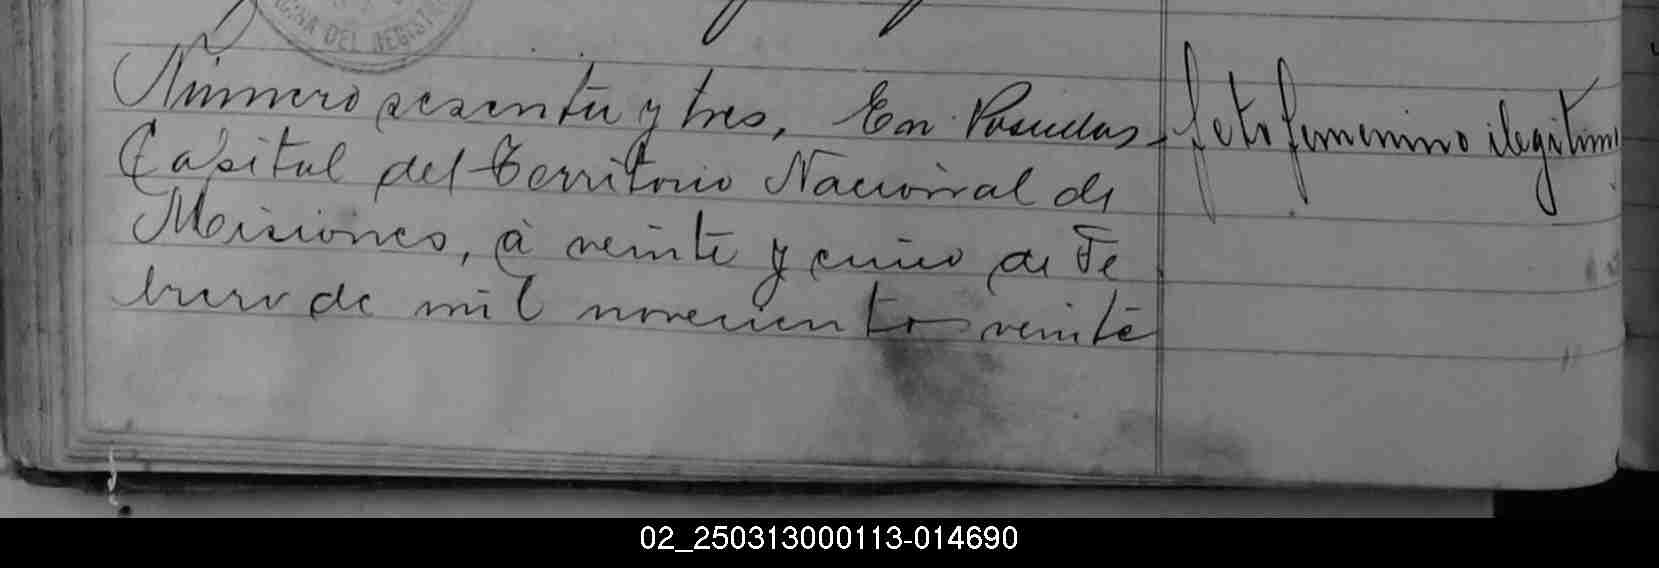 OFICINA DEL REGISTRO
Número sesenta y tres, En Posadas,
Capital del Territorio Nacional de
Misiones, à veinte y cinco de Fe
brero de mil novecientos veinte
feto femenino ilegitimo
02_250313000113-014690